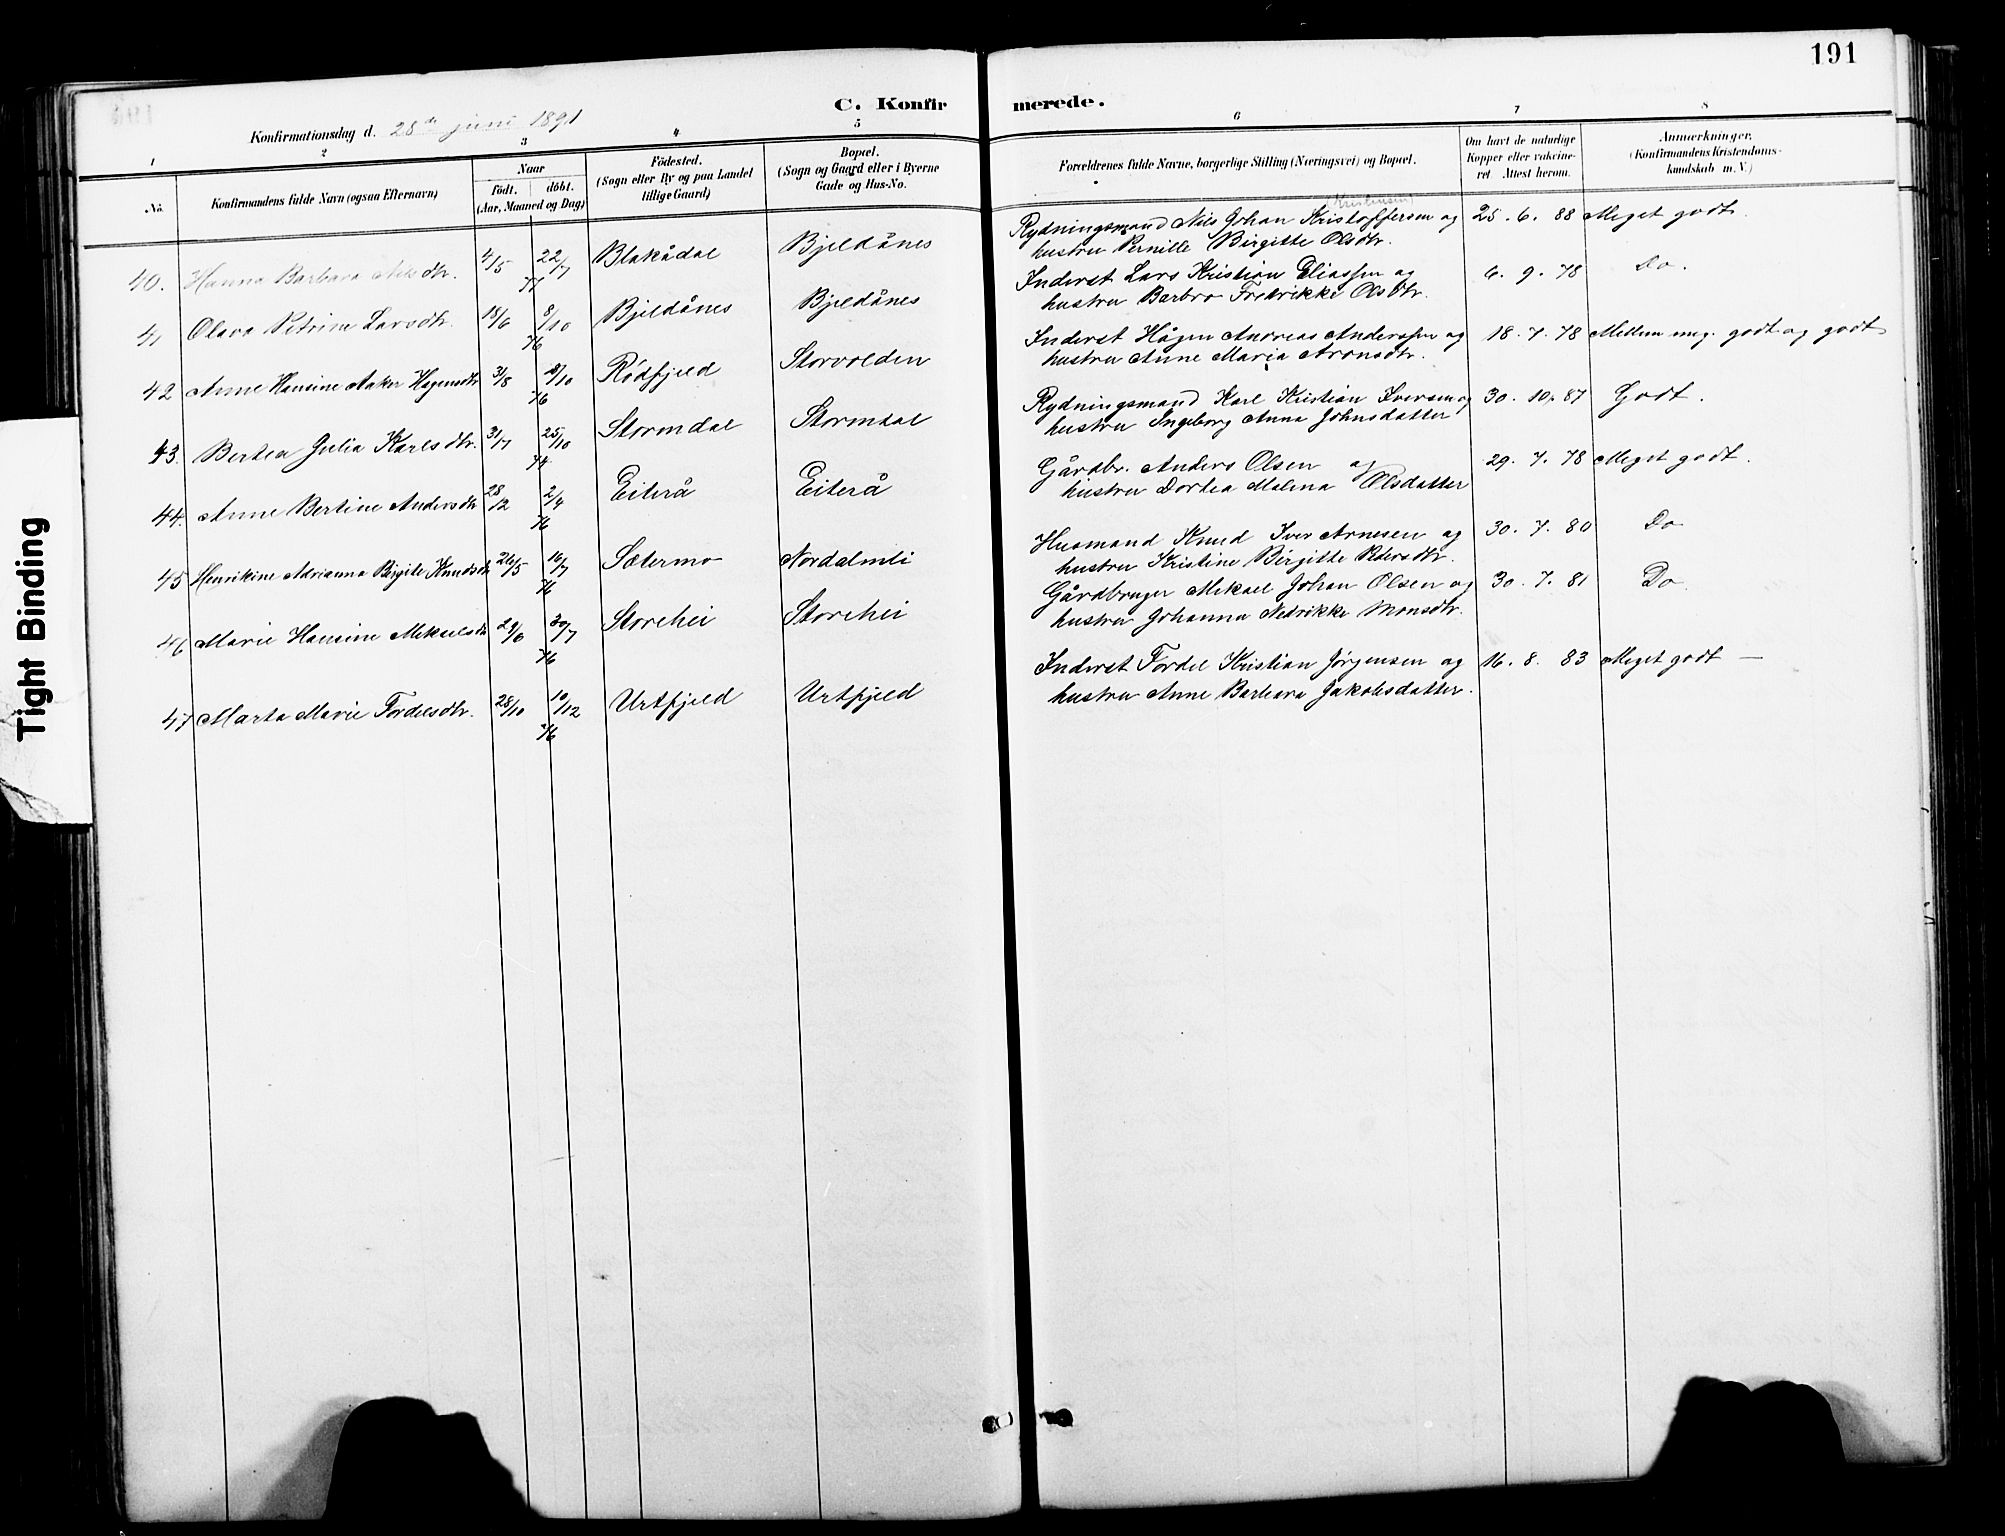 191
C. Konfirmerede.
Konfirmationsdag d. 28de juni 1891
1 2 3 4 5 6 7 8
No. Konfirmandens fulde Navn (ogsaa Efternavn) Naar født. døbt. (Aar, Maaned og Dag) Fødested. (Sogn eller By og paa Landet tillige Gaard) Bopæl. (Sogn og Gaard eller i Byerne Gade og Hus-No. Forældrenes fulde Navne, borgerlige Stilling (Næringsvei) og Bopæl. Om havt de naturlige Kopper eller vakcineret. Attest herom. Anmærkninger. (Konfirmandens Kristendomskundskab m. V.)
40. Hanna Barbara Nilsdtr. 4/5 22/7 77 Blakådal Bjeldånes Rydningsmand Nils Johan Kristoffersen og 25. 6. 88 Meget godt.
hustru Pernille Birgitte Olsdtr.
41 Olava Petrine Larsdtr. 18/6 8/10 76 Bjeldånes Bjeldånes Inderst Lars Kristian Eliassen og 6. 9. 78 Do.
hustru Barbro Fredrikke Olsdtr.
42 Anne Hansine Aaker Hagensdtr 31/8 8/10 76 Rödfjeld Storvolden Inderst Hågen Andreas Anderssen og 18. 7. 78 Mellem meg. godt og godt
hustru Anne Maria Aronsdtr.
43. Bertea Julia Karlsdtr. 31/7 25/10 74 Stormdal Stormdal Rydningsmand Karl Kristian Iversen og 30. 10. 87 Godt.
hustru Ingeborg Anna Johnsdatter
44. Anne Bertine Andersdtr 28/12 2/4 76 Eiterå Eiterå Gårdbr. Anders Olsen og 29. 7. 78 Meget godt.
hustru Dortea Malena Olsdatter
45 Henrikine Adrianna Birgite Knudsdtr 26/5 16/7 76 Sætermo Nordalmli Husmand Knud Iver Arnesen og 30. 7. 80 Do
hustru Kristine Birgitte Pedersdtr.
46 Marie Hansine Mikaelsdtr 29/6 30/7 76 Storehei Storehei Gårdbruger Mikael Johan Olsen og 30. 7. 81 Do.
hustru Johanna Nedrikke Monsdtr.
47 Marta Marie Fordelsdtr. 28/10 10/12 76 Urtfjeld Urtfjeld Inderst Fordel Kristian Jörgensen og 16. 8. 83 Meget godt —
hustru Anne Barbara Jakobsdatter.
Tight Binding